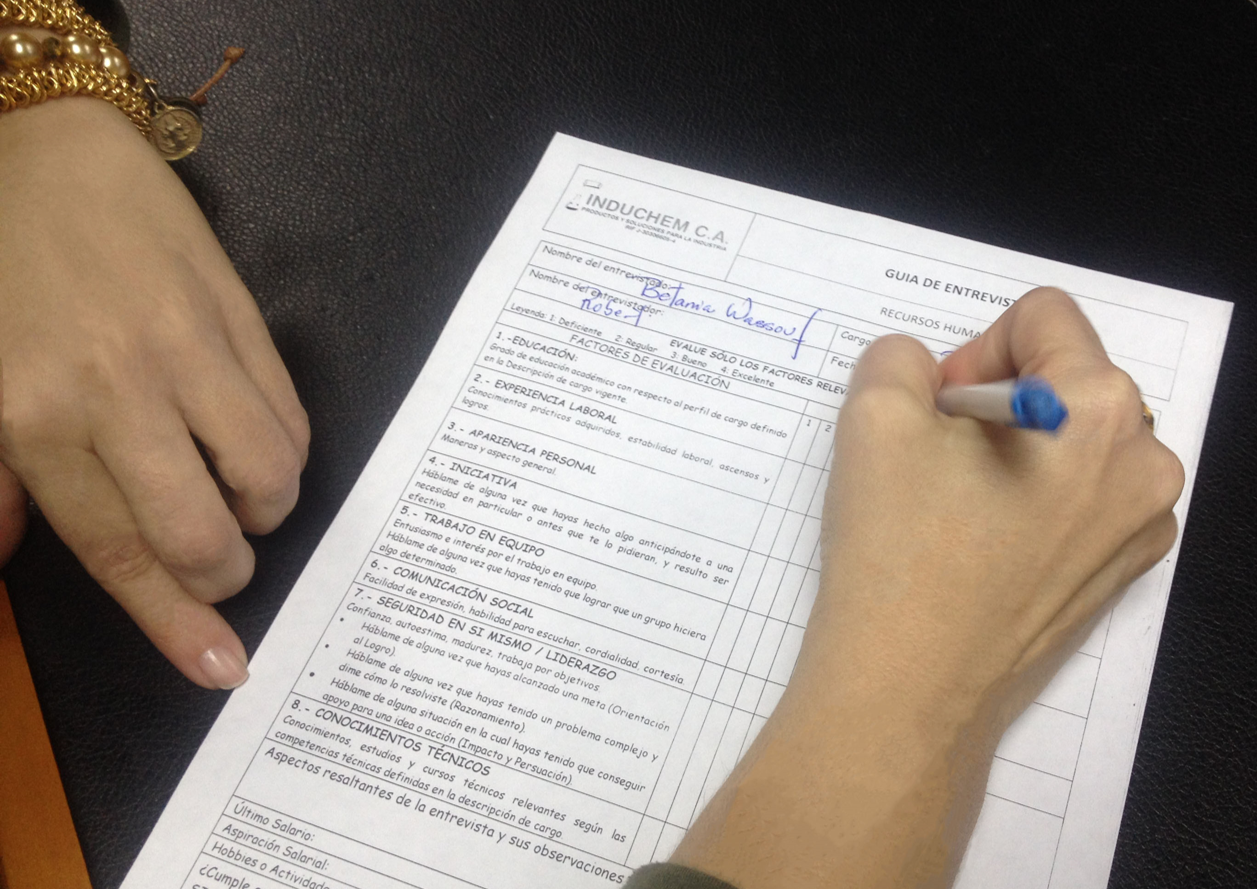 INDUCHEM C.A.
PRODUCTOS Y SOLUCIONES PARA LA INDUSTRIA
GUIA DE ENTREVIS
RECURSOS HUMA
Nombre del entrevistado: Betania
Nombre del entrevistador: Robert
Cargo
Fech
Leyenda: 1: Deficiente 2: Regular 3: Bueno 4: Excelente
EVALUE SÓLO LOS FACTORES RELEV
FACTORES DE EVALUACIÓN
1 2
1.-EDUCACIÓN:
Grado de educación académico con respecto al perfil de cargo definido
en la Descripción de cargo vigente.
2.- EXPERIENCIA LABORAL
Conocimientos prácticos adquiridos, estabilidad laboral, ascensos y
logros.
3.- APARIENCIA PERSONAL
Maneras y aspecto general.
4.- INICIATIVA
Háblame de alguna vez que hayas hecho algo anticipándote a una
necesidad en particular o antes que te lo pidieran, y resulto ser
efectivo.
5.- TRABAJO EN EQUIPO
Entusiasmo e interés por el trabajo en equipo.
Háblame de alguna vez que hayas tenido que lograr que un grupo hiciera
algo determinado.
6.- COMUNICACIÓN SOCIAL
Facilidad de expresión, habilidad para escuchar, cordialidad, cortesía.
7.- SEGURIDAD EN SI MISMO / LIDERAZGO
Confianza, autoestima, madurez, trabaja por objetivos
• Háblame de alguna vez que hayas alcanzado una meta (Orientación
al Logro).
• Háblame de alguna vez que hayas tenido un problema complejo y
dime cómo lo resolviste (Razonamiento).
• Háblame de alguna situación en la cual hayas tenido que conseguir
apoyo para una idea o acción (Impacto y Persuación).
8.- CONOCIMIENTOS TÉCNICOS
Conocimientos, estudios y cursos técnicos relevantes según las
competencias técnicas definidas en la descripción de cargo.
Aspectos resaltantes de la entrevista y sus observaciones
Último Salario:
Aspiración Salarial:
Hobbies o Actividade
¿Cumple